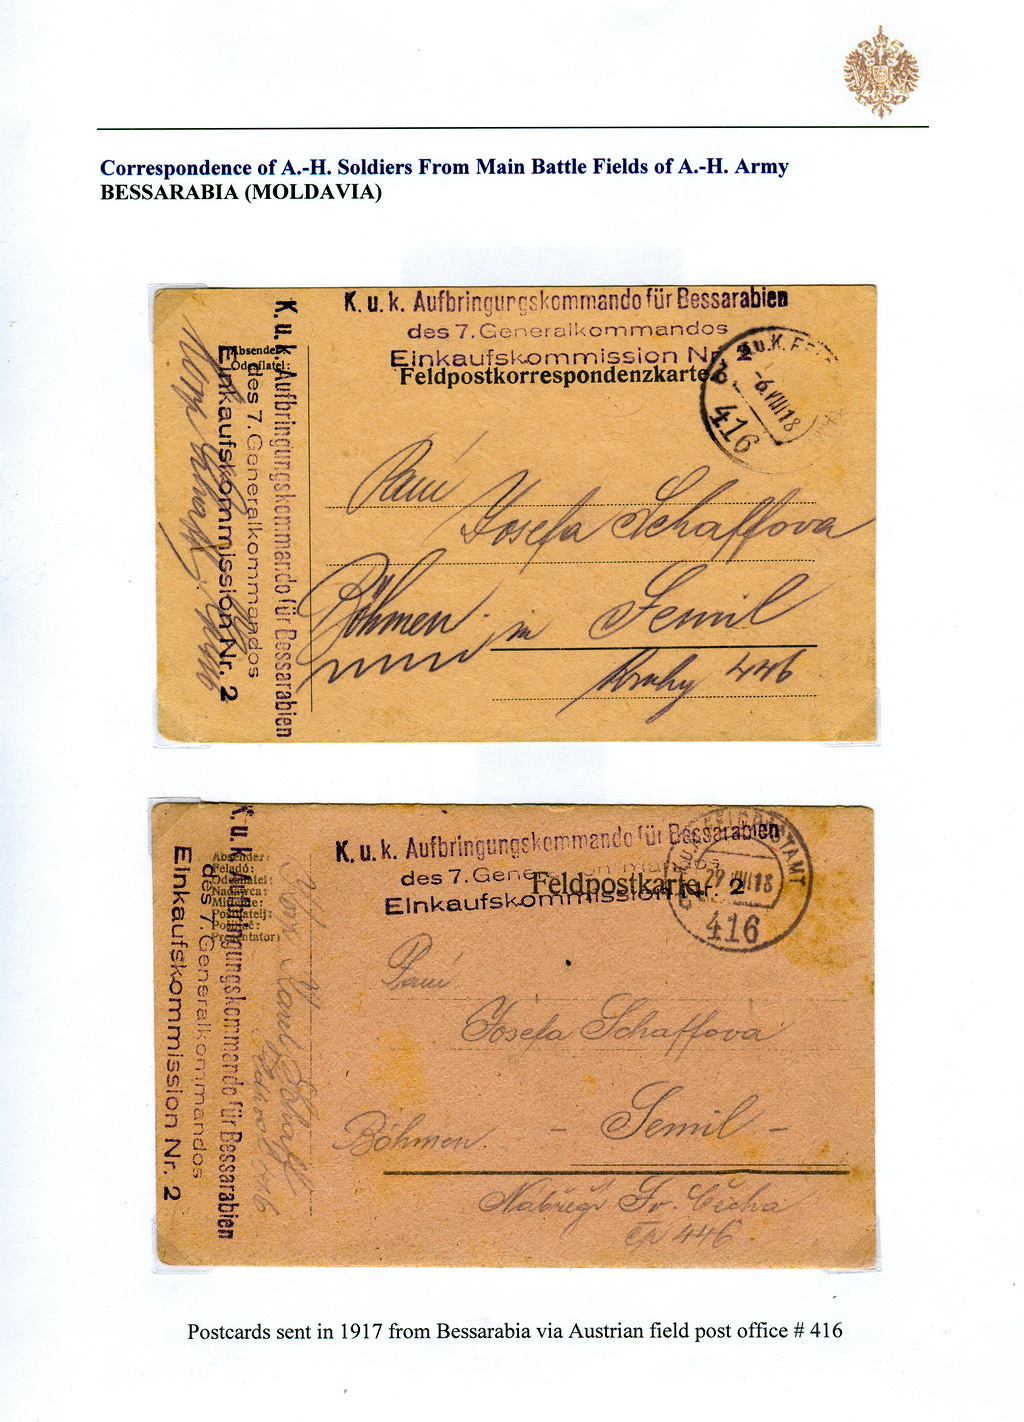 Correspondence of A.-H. Soldiers From Main Battle Fields of A.-H. Army
BESSARABIA (MOLDAVIA)
K. u. k. Aufbringungskommando für Bessarabien
des 7. Generalkommandos
Einkaufskommission Nr. 2
Feldpostkorrespondenzkarte
-6.VIII 18
416
Absender:
Odesílatel:
K. u. k. Aufbringungskommando für Bessarabien
des 7. Generalkommandos
Einkaufskommission Nr. 2
Paní
Josefa Schaffova
Böhmen in Semil
446
K. u. k. Aufbringungskommando für Bessarabien
des 7. Generalkommandos
Einkaufskommission Nr. 2
Feldpostkarte
K.u.K. FELDPOSTAMT
29 VIII 18
416
Absender:
Feladó:
Odesílatel:
Nadawca:
K. u. k. Aufbringungskommando für Bessarabien
des 7. Generalkommandos
Einkaufskommission Nr. 2
Karel Schaff
Paní
Josefa Schaffova
Böhmen. - Semil -
Sv. Čecha
čp 446
Postcards sent in 1917 from Bessarabia via Austrian field post office # 416